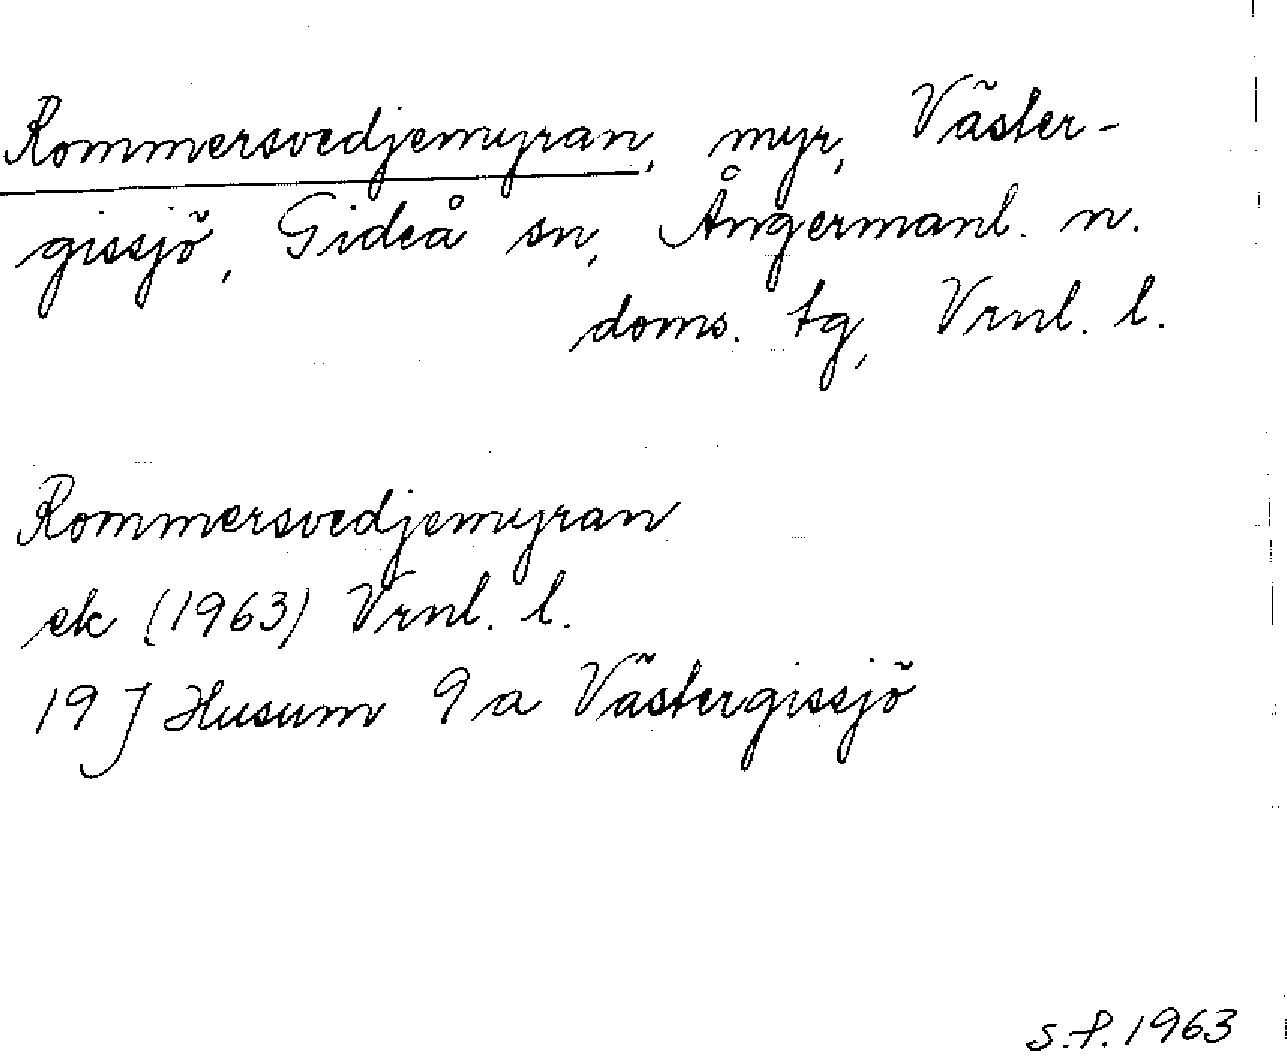 Rommersvedjemyran, myr, Väster-
gissjö, Gideå sn, Ångermanl. n.
doms. tg, Vrnl. l.
Rommersvedjemyran
ek (1963) Vrnl. l.
19 J Husum 9 a Västergissjö
S.P. 1963